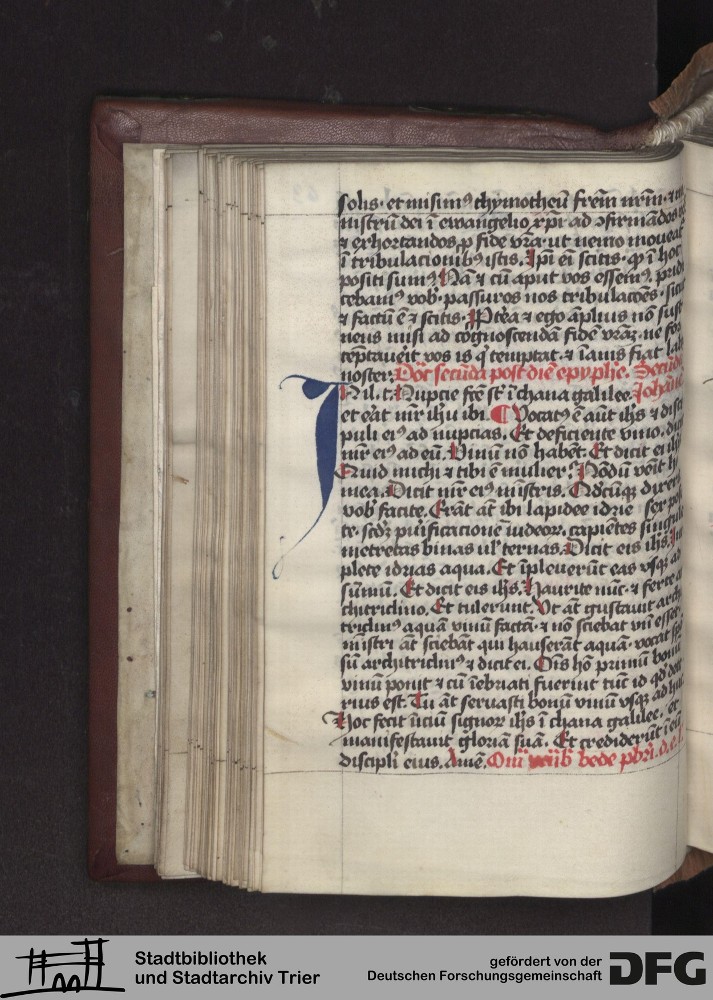 solis. et misimꝰ thymotheū frēm nrm̄. ⁊
nistrū dei ī ewangelio xpī. ad ꝯfirmādos
⁊ exhortandos ꝓ fide vrā. ut nemo moueat
ī tribulacionibꝰ istis. Ipī eī scitis. ꝙ ī hoc
positi sumꝰ. Nā ⁊ cū aput vos essemꝰ. predi
cebamꝰ vob̄. passuros nos tribulacōes. sicut
⁊ factū ē ⁊ scitis. Pꝑtea ⁊ ego āplius nō sust
nens misi ad cognoscendā fidē vrāꝫ. ne for
te tēptauerit vos is q̄ temptat. ⁊ īanis fiat lab
noster. Dōc secūda post diē epyphīe. Secūdū
In il. t. Nupcie fc̄e st̄ ī chana galilee. Johānē
et erāt mr̄ ihū ibi. ¶ Vocatꝰ ē aūt ihs̄ ⁊ disci
puli eiꝰ ad nupcias. Et deficiente vino. dicit
mr̄ eiꝰ ad eū. Vinū nō habēt. Et dicit ei ihs̄
Quid michi ⁊ tibi ē mulier? Nōdū venit h
mea. Dicit mr̄ eiꝰ mīstris. Qdcūqꝫ dixerit
vob̄ facite. Erāt aūt ibi lapidee idrie sex posi
te. scdꝫ purificacionē iudeoꝝ. capiētes singule
metretas binas ul̄ ternas. Dicit eis ihs̄. Im
plete idrias aqua. Et īpleuerūt eas vsqꝫ ad
sūmū. Et dicit eis ihs̄. Haurite nūc. ⁊ ferte ar
chitriclino. Et tulerunt. Vt aūt gustauit archi
triclinꝰ aquā vinū factā. ⁊ nō sciebat vn̄ esset.
mīstri aūt sciebāt qui hauserāt aquā. vocat spō
sū architriclinꝰ ⁊ dicit ei. Oīs hō primū bonū
vinū ponit ⁊ cū īebriati fuerint tūc id qd̄ dete
rius est. Tu aūt seruasti bonū vinū vsqꝫ ad huc
Hoc fecit īiciū signoꝝ ihs̄ ī chana galilee. et
manifestauit gloriā suā. Et crediderūt ī eū
discipli eius. Amē. Om̄ vēīb̄ bede pb̄ri. d. e. l.
Stadtbibliothek
und Stadtarchiv Trier
gefördert von der
Deutschen Forschungsgemeinschaft
DFG